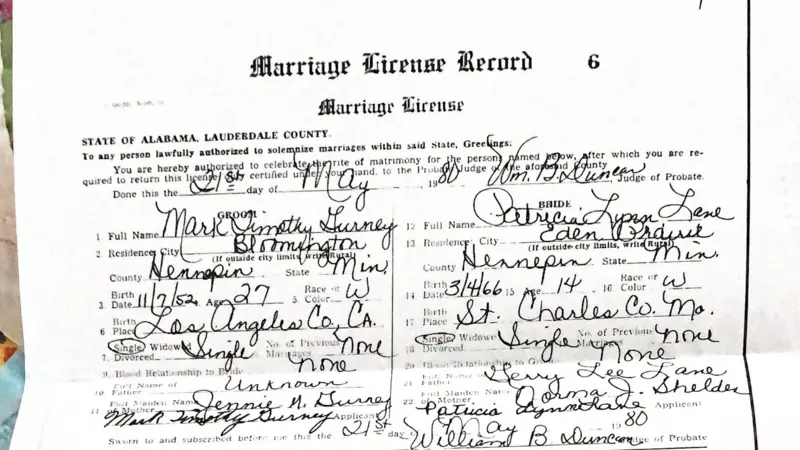 Marriage License Record 6
Marriage License
STATE OF ALABAMA, LAUDERDALE COUNTY.
To any person lawfully authorized to solemnize marriages within said State, Greetings:
You are hereby authorized to celebrate the rite of matrimony for the persons named below, after which you are re-
quired to return this license certified under your hand, to the Probate Judge of the aforesaid county
Done this the 21st day of May, 1980 Wm. B. Duncan Judge of Probate.
GROOM
1 Full Name Mark Timothy Gurney
2. Residence, City Bloomington
(If outside city limits, write Rural)
County Hennepin State Min.
3. Birth Date 11/7/52 4. Age 27 5. Race or Color W
6 Birth Place Los Angeles Co, CA.
7. Single Widowed Divorced Single No. of Previous Marriages None
9. Blood Relationship to Bride None
10 Full Name of Father Unknown
11 Full Maiden Name of Mother Jennie N. Gurney
Mark Timothy Gurney Applicant
BRIDE
12 Full Name Patricia Lynn Lane
13 Residence, City Eden Prairie
(If outside city limits, write Rural)
County Hennepin State Min.
14. Birth Date 3/4/66 15 Age 14 16 Race or Color W
17 Birth Place St. Charles Co. Mo.
18 Single Widow Divorced Single No. of Previous Marriages None
20 Blood Relationship to Groom None
21 Full Name of Father Lee Lane
22 Full Maiden Name of Mother Norma J. Shelden
Patricia Lynn Lane Applicant
Sworn to and subscribed before me this the 21st day of May 1980
William B Duncan Judge of Probate